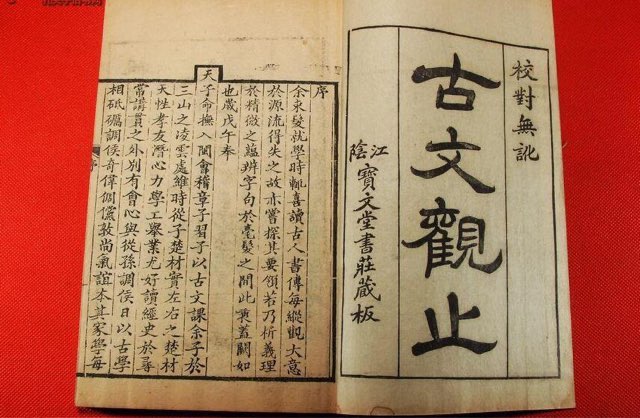 校對無訛
古文觀止
江陰寶文堂書莊藏板
序
余束髮就學時輒喜讀古人書傳每縱觀大意
於源流得失之故亦嘗探其要領若乃析義理
於精微之蘊辨字句於毫髮之間此衷蓋闕如
也歲戊午奉
天子命撫入閩會稽章子習子以古文課余子於
三山之凌雲處維時從子楚材實左右之楚材
天性孝友潛心力學工舉業尤好讀經史於尋
常講貫之外別有會心與從孫調侯日以古學
相砥礪調侯奇偉倜儻敦尚氣誼本其家學每
序